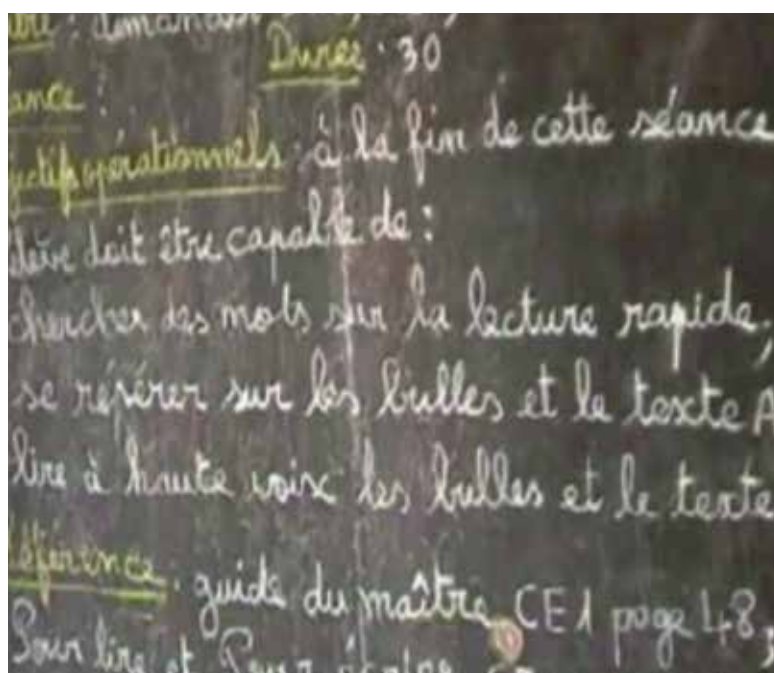 Durée : 30
ance :
jectifs opérationnels : à la fin de cette séance
élève doit être capable de :
chercher des mots sur la lecture rapide ;
se répérer sur les bulles et le texte A
lire à haute voix les bulles et le texte
référence : guide du maître CE1 page 48,
Pour lire et Pour écrire